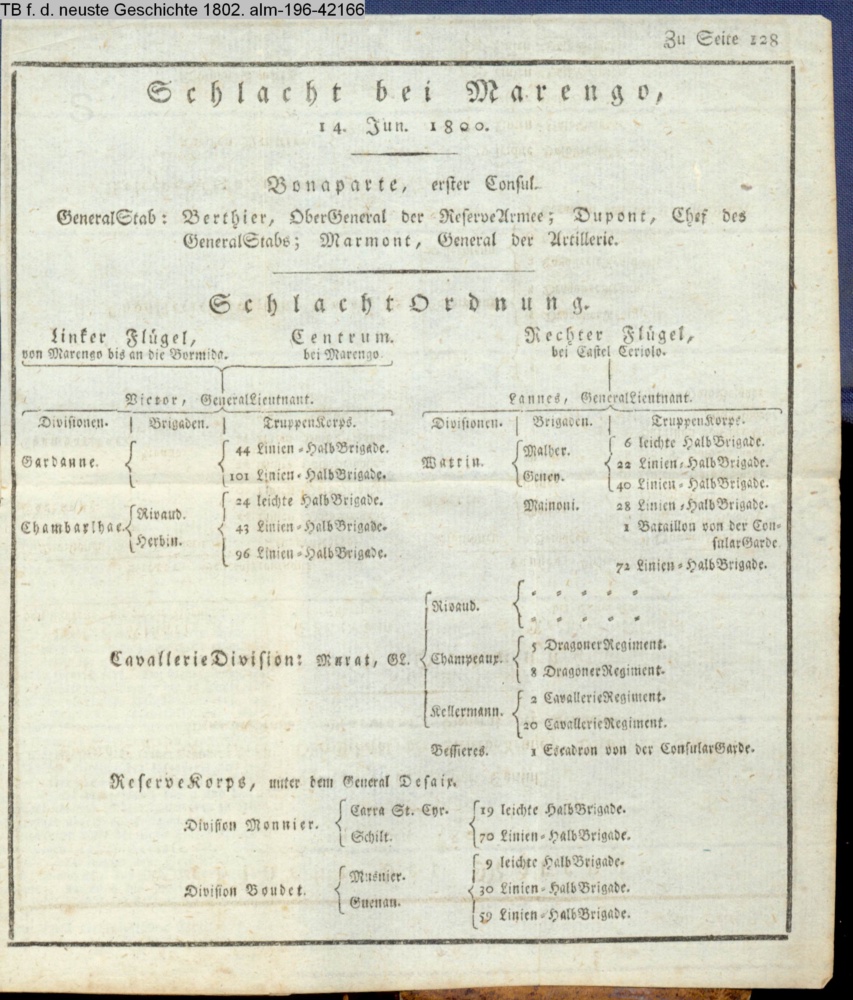 TB f. d. neuste Geschichte 1802. alm-196-42166
Zu Seite 128
Schlacht bei Marengo,
14. Jun. 1800.
Bonaparte, erster Consul.
GeneralStab: Berthier, OberGeneral der ReserveArmee; Dupont, Chef des
GeneralStabs; Marmont, General der Artillerie.
SchlachtOrdnung.
Linker Flügel,
von Marengo bis an die Bormida.
Centrum.
bei Marengo.
Victor, GeneralLieutnant.
Divisionen. | Brigaden. | TruppenKorps.
Gardanne.
44 Linien-HalbBrigade.
101 Linien-HalbBrigade.
Chambarlhac
Rivaud.
Herbin.
24 leichte HalbBrigade.
43 Linien-HalbBrigade.
96 Linien-HalbBrigade.
Rechter Flügel,
bei Castel Ceriolo.
Lannes, GeneralLieutnant.
Divisionen. | Brigaden. | TruppenKorps.
Wattrin.
Malher.
Geney.
6 leichte HalbBrigade.
22 Linien-HalbBrigade.
40 Linien-HalbBrigade.
Mainoni.
28 Linien-HalbBrigade.
1 Bataillon von der Con-
sularGarde.
72 Linien-HalbBrigade.
CavallerieDivision: Murat, GL.
Rivaud.
" " " " "
" " " " "
Champeaux.
5 DragonerRegiment.
8 DragonerRegiment.
Kellermann.
2 CavallerieRegiment.
20 CavallerieRegiment.
Bessieres.
1 Escadron von der ConsularGarde.
ReserveKorps, unter dem General Desaix.
Division Monnier.
Carra St. Cyr.
Schilt.
19 leichte HalbBrigade.
70 Linien-HalbBrigade.
Division Boudet.
Musnier.
Guenau.
9 leichte HalbBrigade.
30 Linien-HalbBrigade.
59 Linien-HalbBrigade.